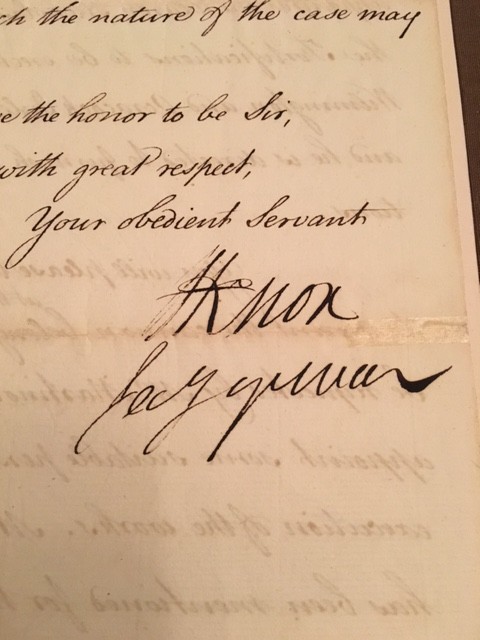 ch the nature of the case may
e the honor to be Sir,
with great respect,
Your obedient Servant
HKnox
Secy of war